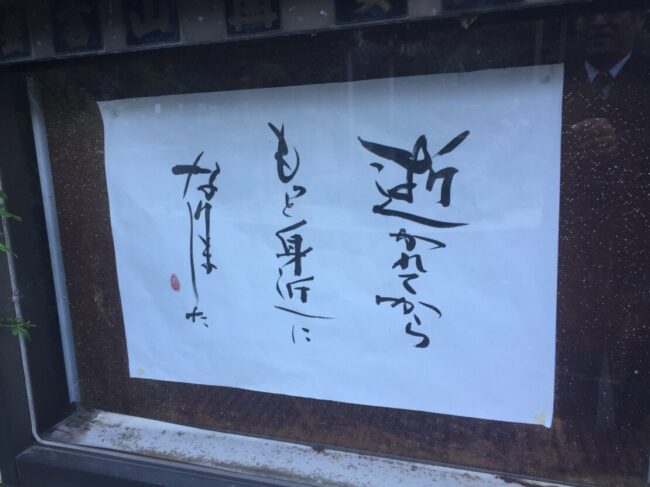 逝かれてから
もっと身近に
なりました